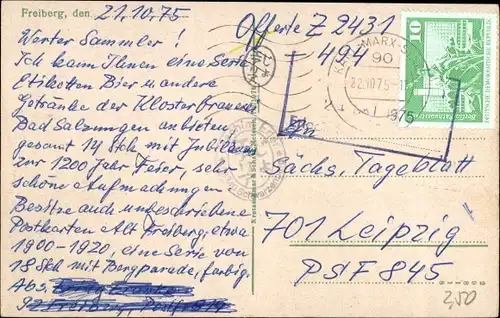 Freiberg, den 21.10.75
Werter Sammler!
Ich kann Ihnen eine Serie
Etiketten Bier u. andere
Getränke der Klosterbrauerei
Bad Salzungen anbieten
gesamt 14 Stck mit Jubiläum
zur 1200 Jahr Feier, sehr
schöne Aufmachungen.
Besitze auch unbeschriebene
Postkarten Alt Freiberg, etwa
1900-1920, eine Serie von
18 Stck mit Bergparade, farbig.
Abs.
Offerte Z 2431
494
MARX-S
90
22.10.75
10
DEUTSCHE DEMOKRATISCHE REPUBLIK
An
Sächs. Tageblatt
701 Leipzig
PSF 845
2,50